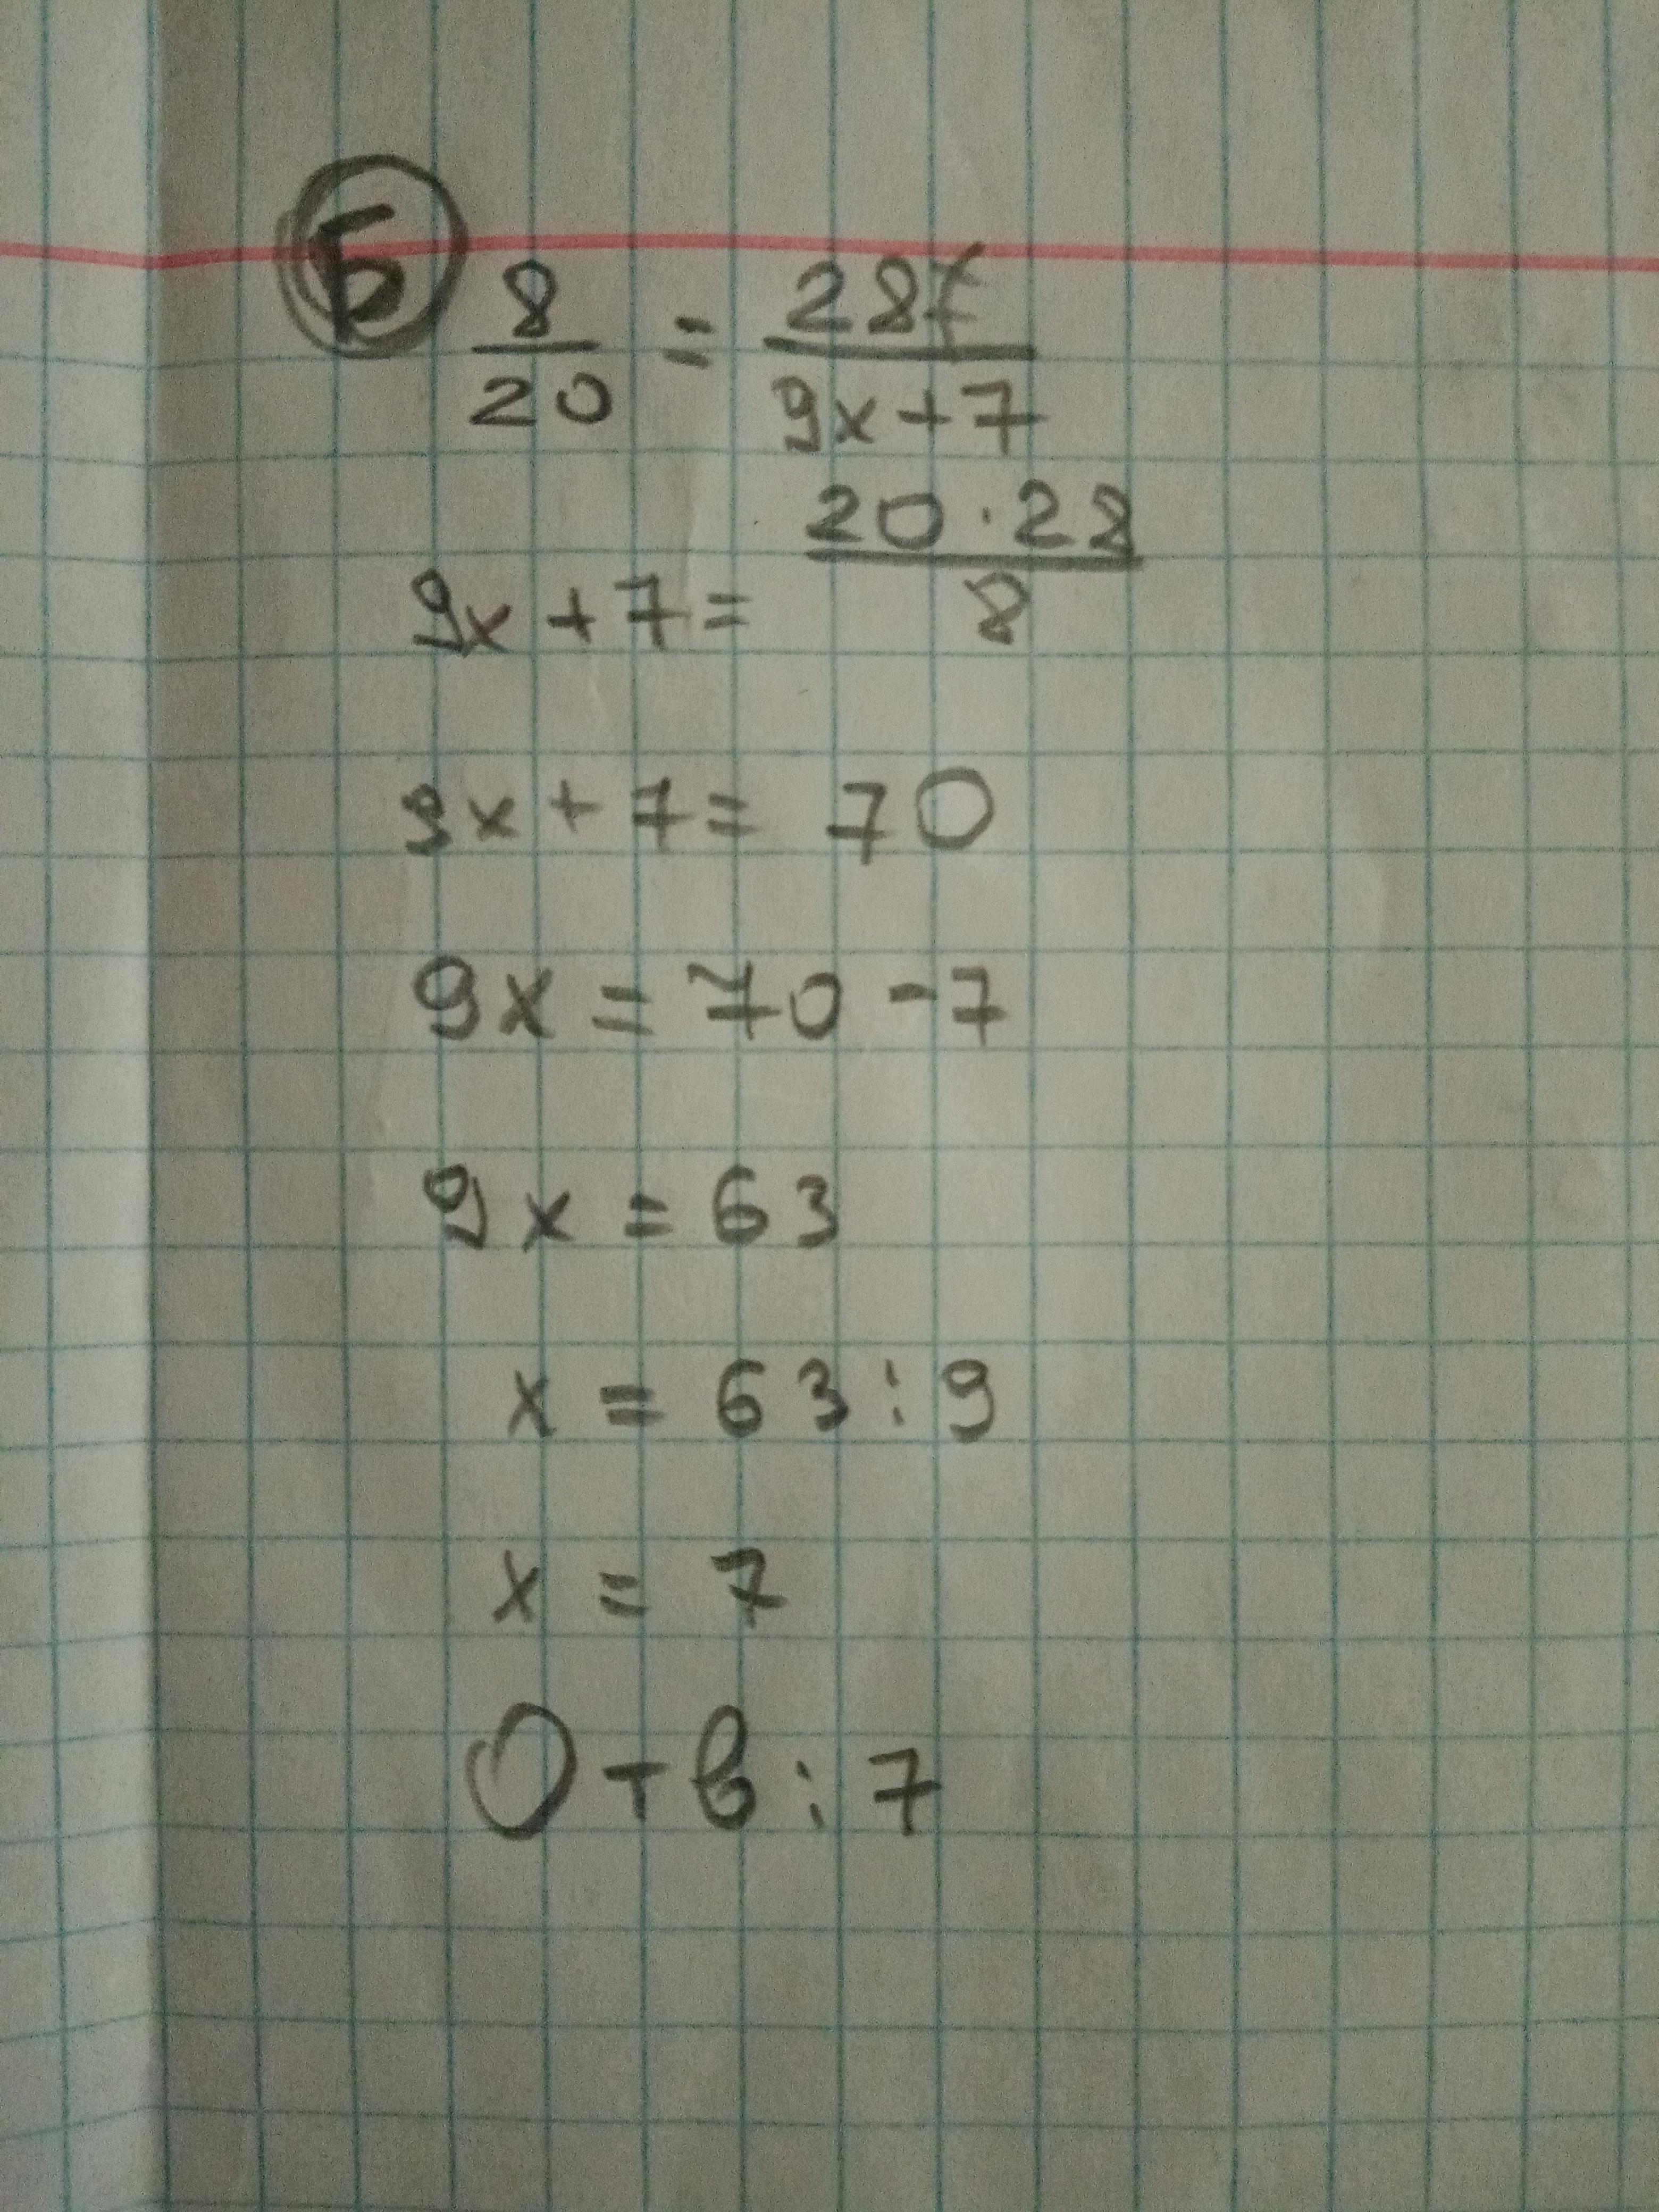 Б 8/20 = 28/(9x+7)
9x+7= (20·28)/8
9x+7= 70
9x = 70 -7
9x = 63
x = 63:9
x = 7
Отв: 7